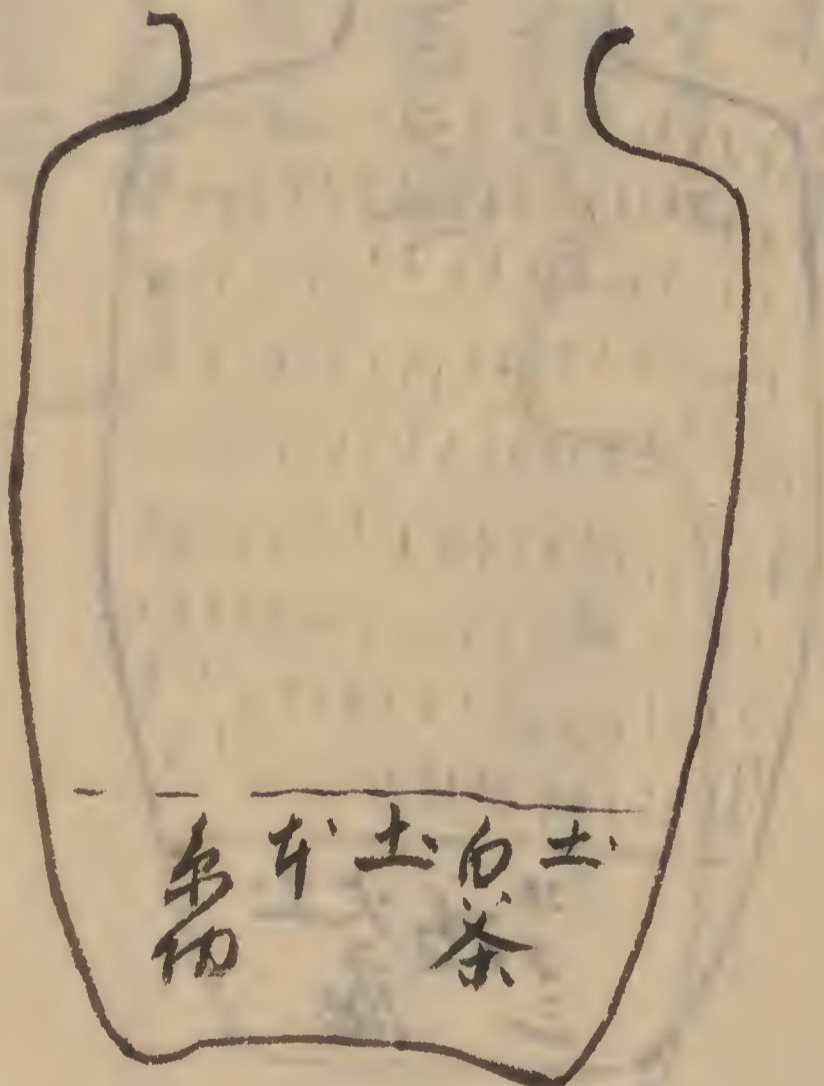 土
白茶
土
本
糸切